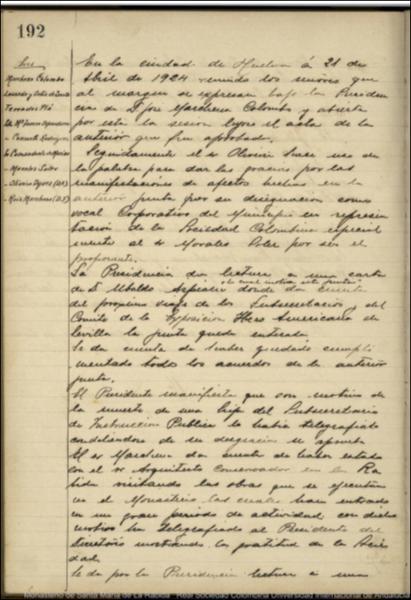 192
Sres
Marchena Colombo
Terrades Plá
En la ciudad de Huelva á 21 de
Abril de 1924 reunidos los señores que
al margen se expresan bajo la Presiden
cia de D. José Marchena Colombo y abierta
por este la sesion leyose el acta de la
anterior que fue aprobada.
Seguidamente el Sr Oliveira hace uso de
la palabra para dar las gracias por las
manifestaciones de afectos hechas en la
anterior junta por su designacion como
vocal Corporativo del Municipio en represen
tacion de la Sociedad Colombina especial
mente al Sr Morales Soler por ser el
proponente.
La Presidencia da lectura a una carta
de D. Ubaldo dando cuenta
del proximo viaje de los Subsecretarios del
Comite de la Exposicion Ibero Americana de
Sevilla la junta queda enterada
Se da cuenta de haber quedado cumpli
mentado todos los acuerdos de la anterior
junta.
El Presidente manifiesta que con motivo de
la muerte de una hija del Subsecretario
de Instruccion Publica le habia telegrafiado
condoliendose de su desgracia se aprueba
El Sr Marchena da cuenta de haber estado
con el Sr Arquitecto Conservador en la Ra
bida visitando las obras que se ejecutan
en el Monasterio las cuales han entrado
en un gran periodo de actividad con dicho
motivo ha telegrafiado al Presidente del
Directorio mostrando la gratitud de la Socie
dad.
Se da por la Presidencia lectura a una
Monasterio de Santa María de La Rábida - Real Sociedad Colombina Universidad Internacional de Andalucía